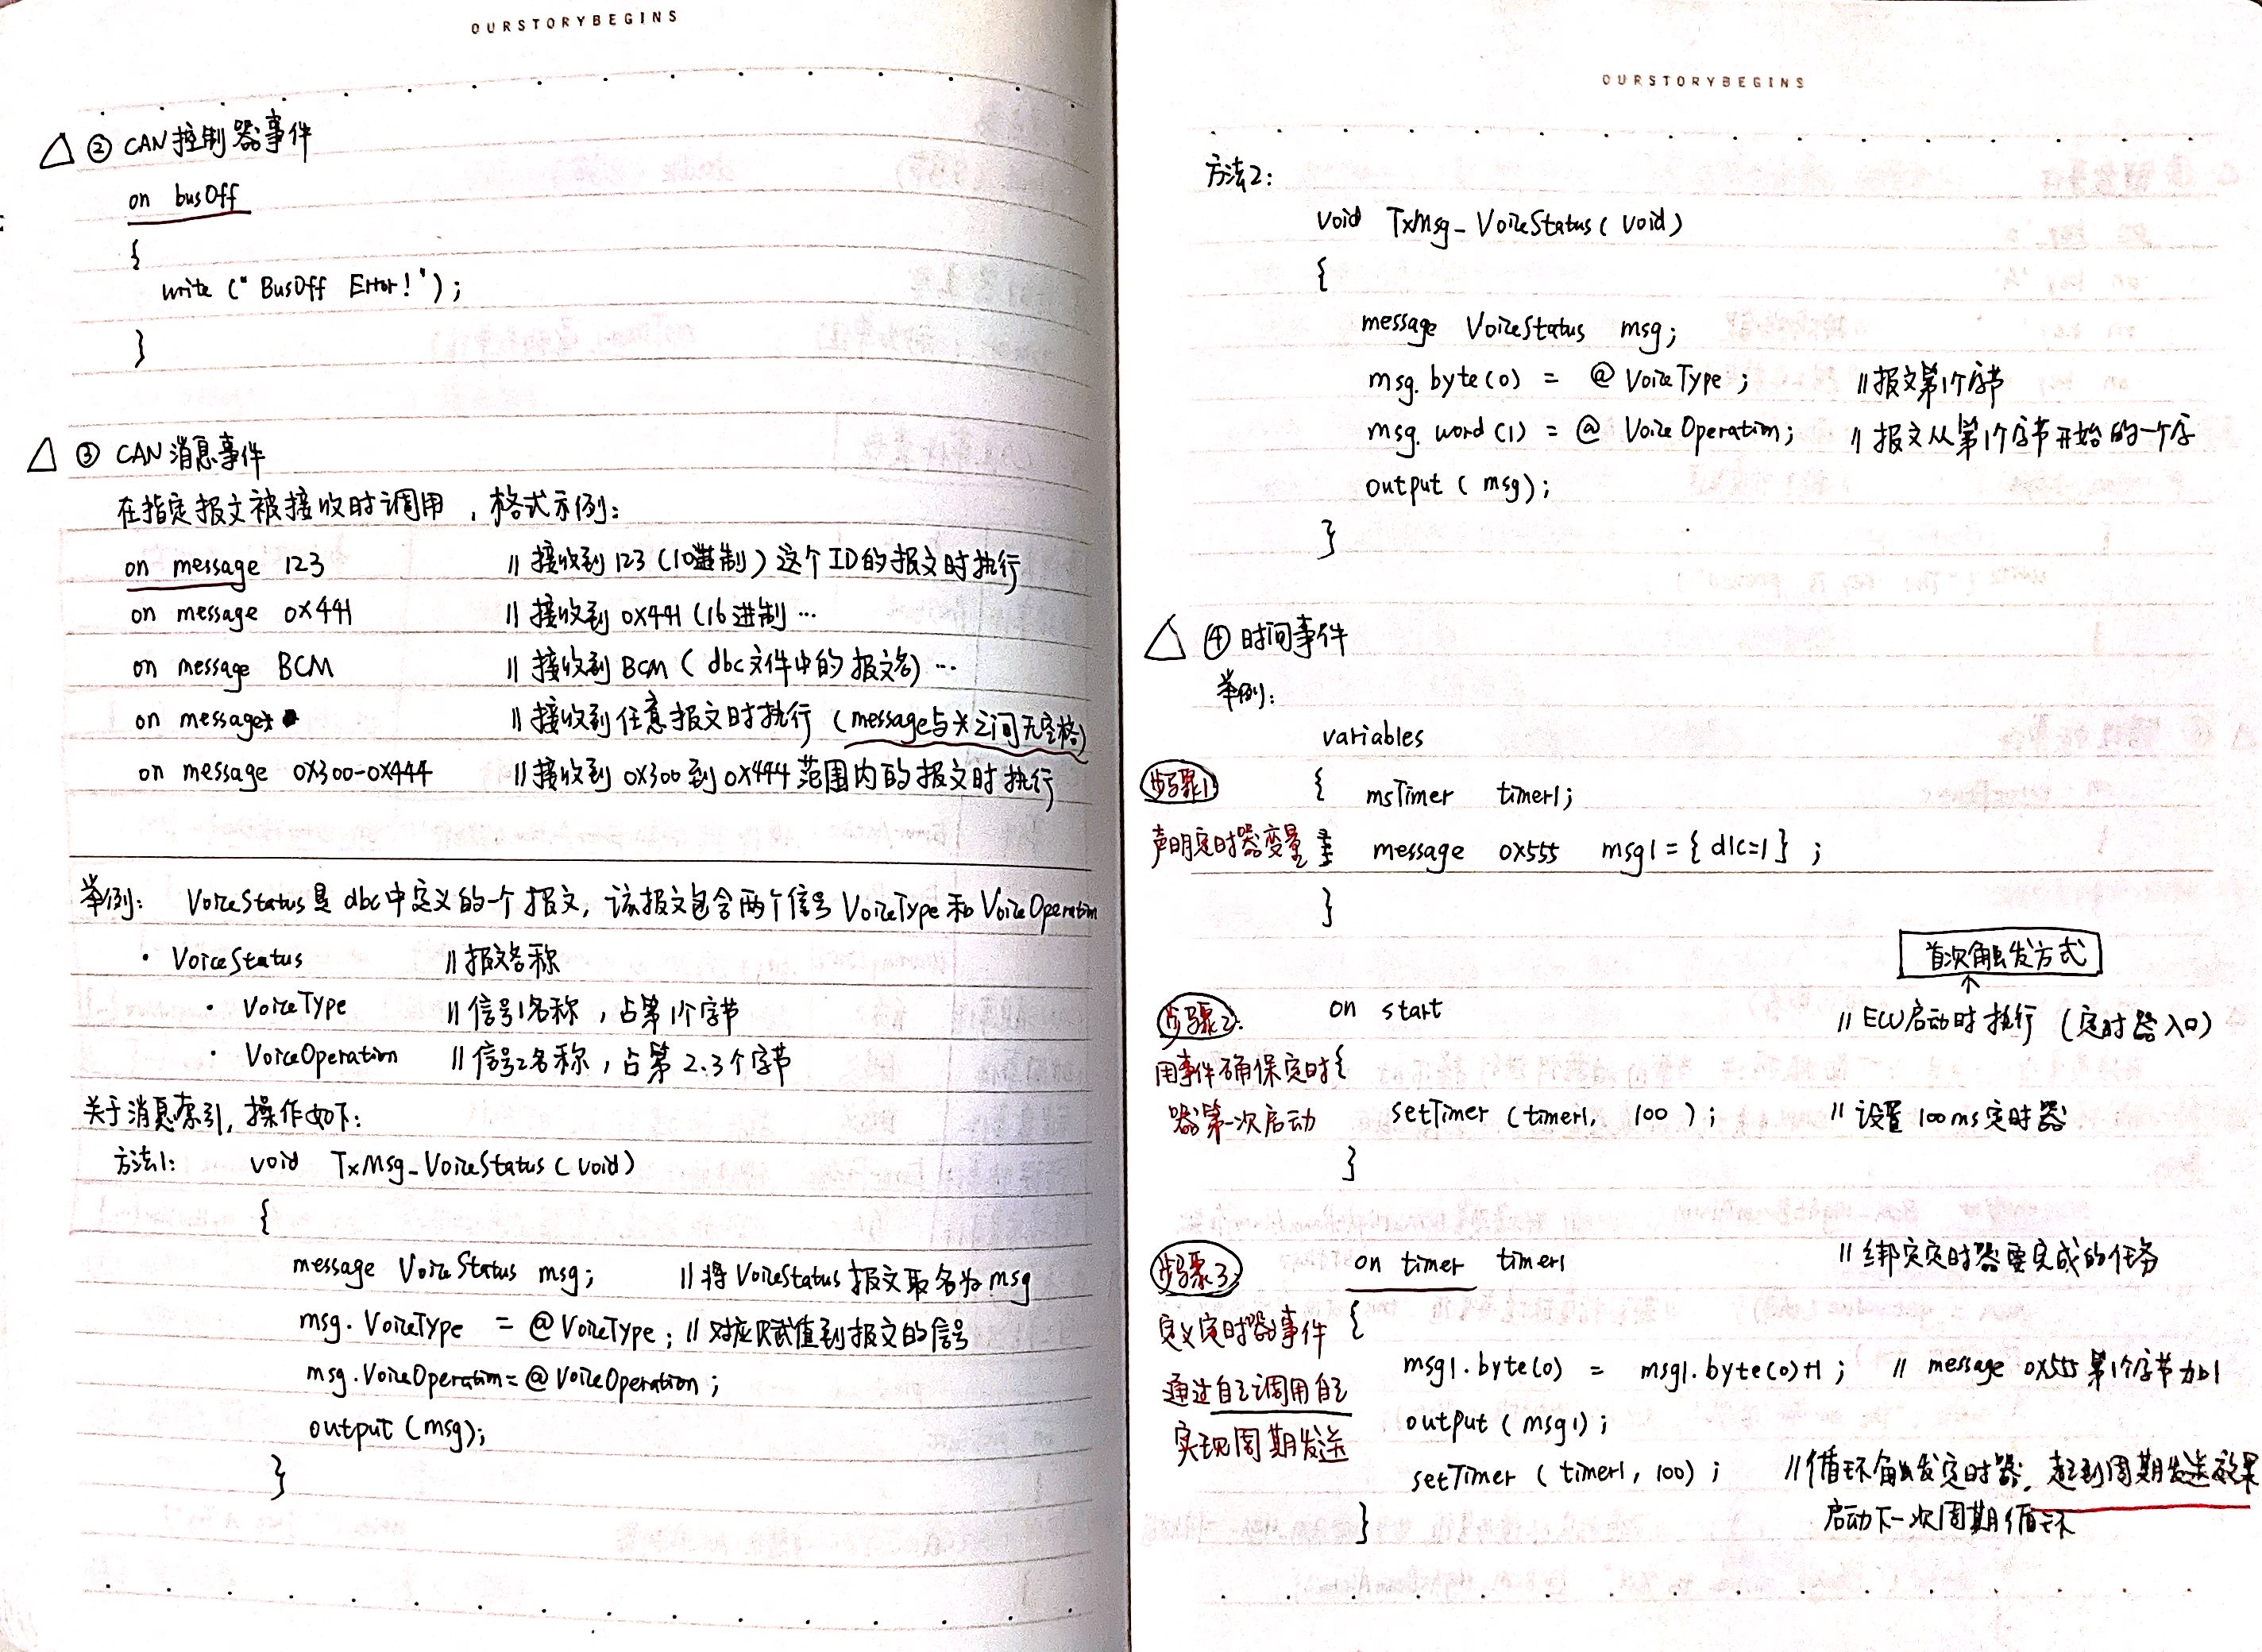 OURSTORYBEGINS
△ ② CAN控制器事件
on busOff
{
write ("BusOff Error!");
}
△ ③ CAN消息事件
在指定报文被接收时调用，格式示例：
on message 123 // 接收到123（10进制）这个ID的报文时执行
on message 0X441 // 接收到0X441（16进制…
on message BCM // 接收到BCM（dbc文件中的报文名）…
on message* // 接收到任意报文时执行（message与*之间无空格）
on message 0X300-0X444 // 接收到0X300到0X444范围内的报文时执行
举例： VoiceStatus是dbc中定义的一个报文，该报文包含两个信号VoiceType和VoiceOperation
· VoiceStatus // 报文名称
· VoiceType // 信号1名称，占第1个字节
· VoiceOperation // 信号2名称，占第2、3个字节
关于消息索引，操作如下：
方法1： void TxMsg_VoiceStatus(void)
{
message VoiceStatus msg; // 将VoiceStatus报文取名为msg
msg.VoiceType = @VoiceType; // 对应赋值到报文的信号
msg.VoiceOperation=@VoiceOperation;
output(msg);
}
OURSTORYBEGINS
方法2：
void TxMsg_VoiceStatus(void)
{
message VoiceStatus msg;
msg.byte(0) = @VoiceType; // 报文第1个字节
msg.word(1) = @VoiceOperation; // 报文从第1个字节开始的一个字
output(msg);
}
△ ④时间事件
举例：
variables
步骤1: { msTimer timer1;
声明定时器变量 message 0X555 msg1={dlc=1};
}
首次触发方式
步骤2: on start // ECU启动时执行（定时器入口）
用事件确保定时 {
器第一次启动 setTimer (timer1, 100); // 设置100ms定时器
}
步骤3: on timer timer1 // 绑定定时器要完成的任务
定义定时器事件 {
通过自己调用自己 msg1.byte(0) = msg1.byte(0)+1; // message 0X555第1个字节加1
实现周期发送 output(msg1);
setTimer (timer1, 100); // 循环触发定时器，起到周期发送效果
} 启动下一次周期循环